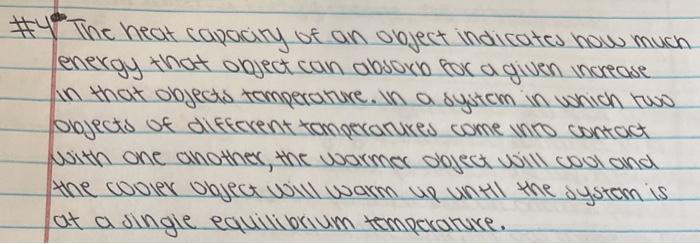 #4 The heat capacity of an object indicates how much
energy that object can absorb for a given increase
in that objects temperature. In a system in which two
objects of different temperatures come into contact
with one another, the warmer object will cool and
the cooler object will warm up until the system is
at a single equilibrium temperature.